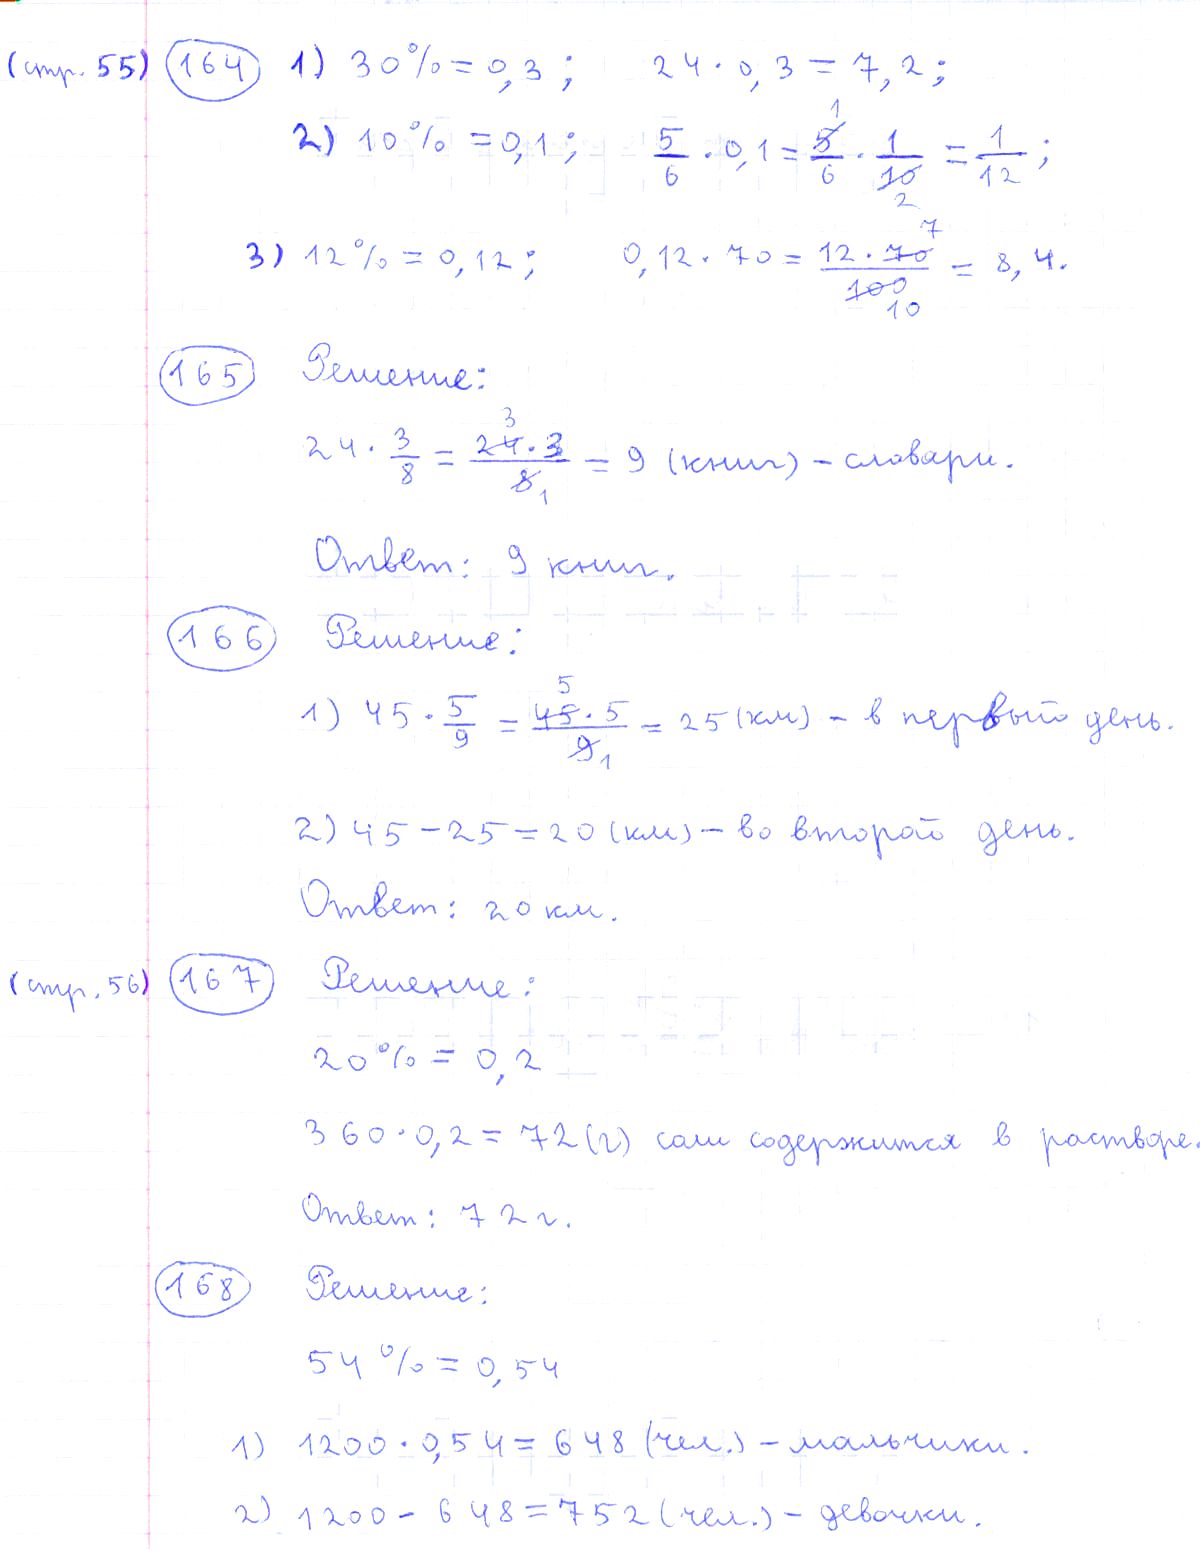 (стр. 55) 164 1) 30% = 0,3; 24 · 0,3 = 7,2;
2) 10% = 0,1; 5/6 · 0,1 = 5/6 · 1/10 = 1/12; 1 2
3) 12% = 0,12; 0,12 · 70 = 12 · 70/100 = 8,4. 7 10
165 Решение:
24 · 3/8 = 24 · 3/8 = 9 (книг) – словари. 3 1
Ответ: 9 книг.
166 Решение:
1) 45 · 5/9 = 45 · 5/9 = 25 (км) – в первый день. 5 1
2) 45 – 25 = 20 (км) – во второй день.
Ответ: 20 км.
(стр. 56) 167 Решение:
20% = 0,2
360 · 0,2 = 72 (г) соли содержится в растворе.
Ответ: 72 г.
168 Решение:
54% = 0,54
1) 1200 · 0,54 = 648 (чел.) – мальчики.
2) 1200 – 648 = 752 (чел.) – девочки.